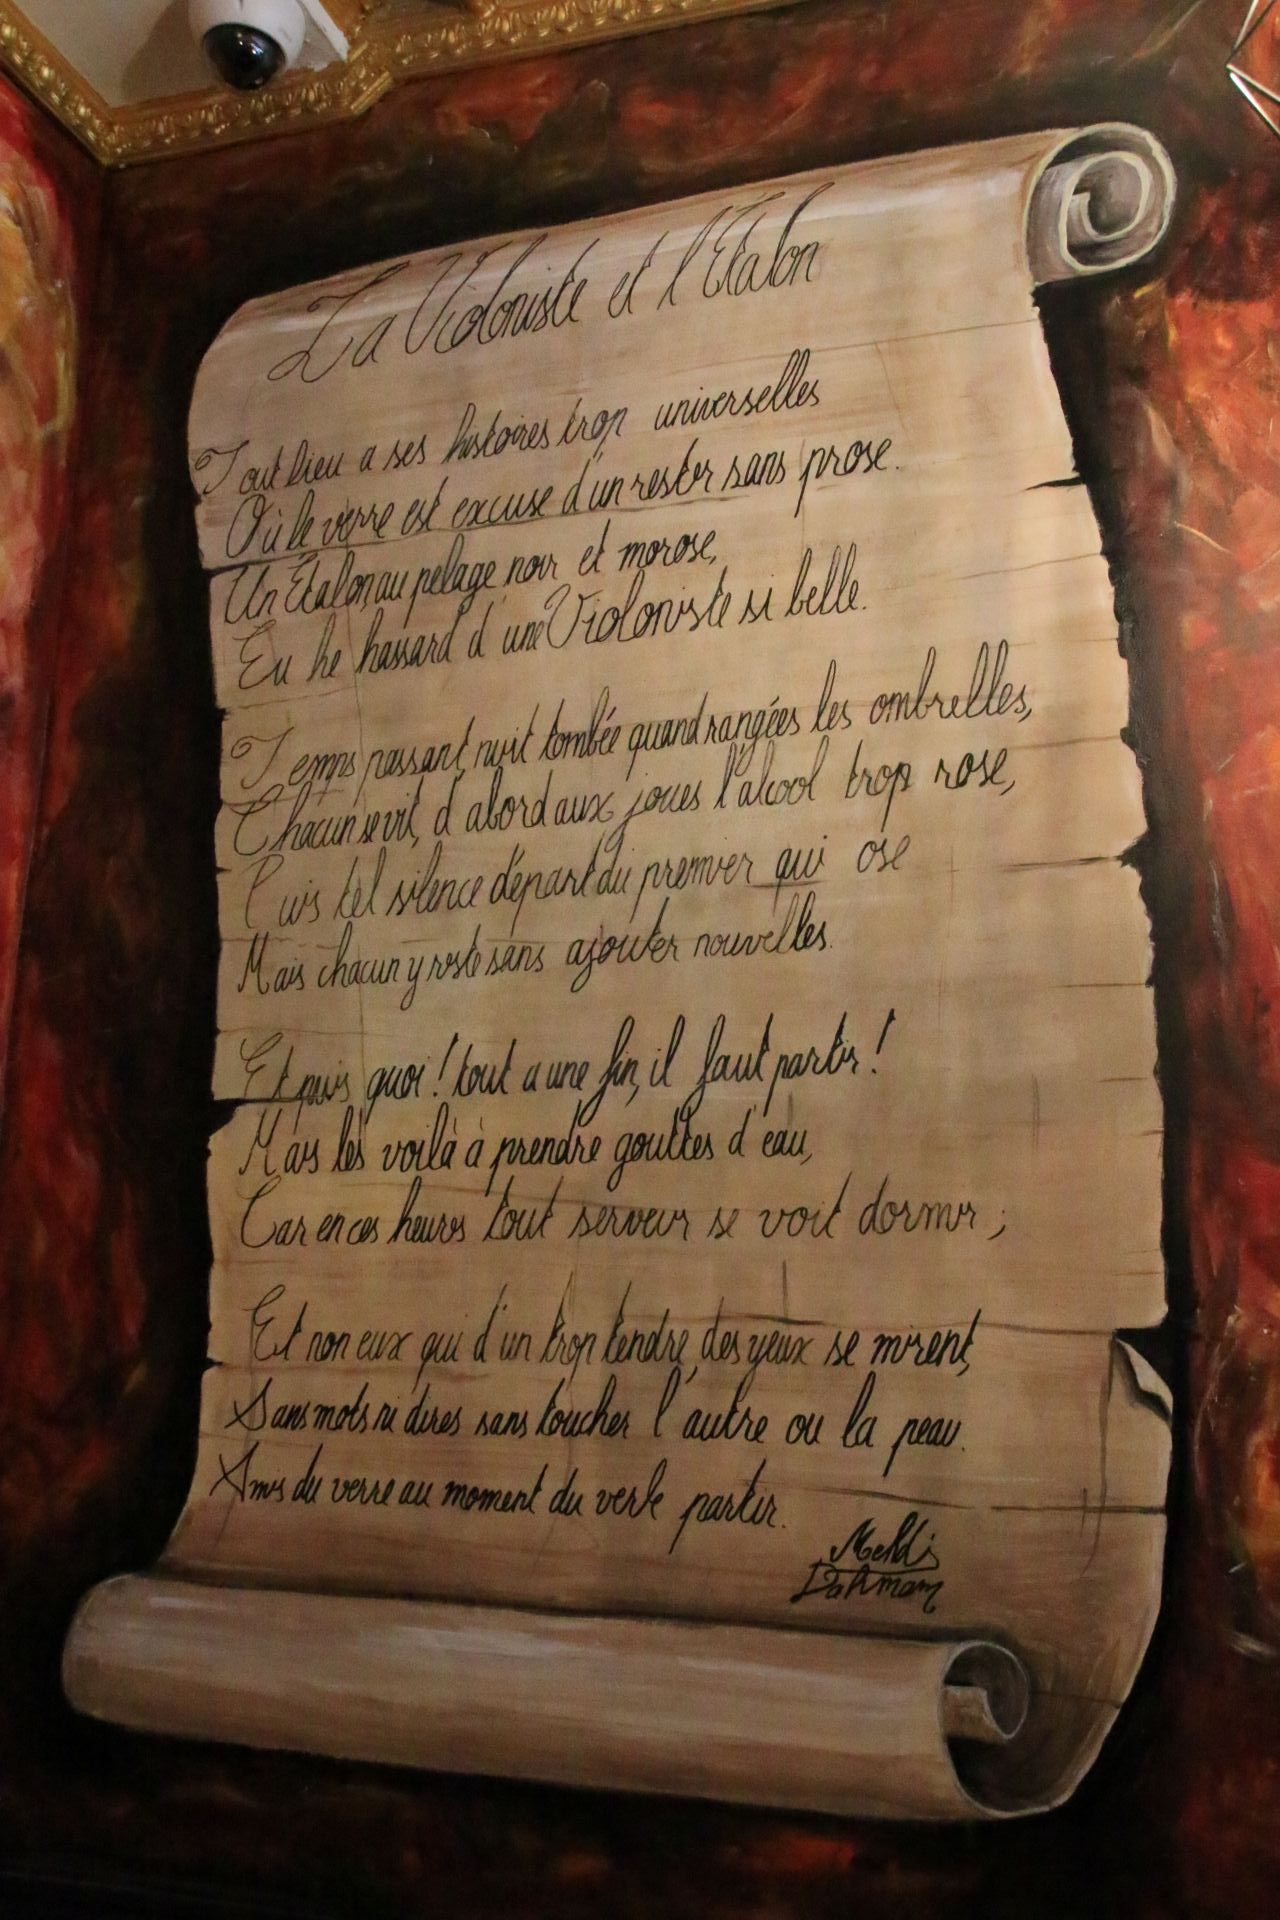 La Violoniste et l'Étalon
Tout lieu a ses histoires trop universelles
Où le verre est excuse d'un rester sans prose.
Un Étalon, au pelage noir et morose,
Eu he hassard d'une Violoniste si belle.
Temps passant, nuit tombée quand rangées les ombrelles,
Chacun se vit, d'abord aux joues l'alcool trop rose,
Puis tel silence départ du premier qui ose
Mais chacun y reste sans ajouter nouvelles.
Et puis quoi ! tout a une fin, il faut partir !
Mais les voilà à prendre gouttes d'eau,
Car en ces heures tout serveur se voit dormir ;
Et non eux qui d'un trop tendre, des yeux se mirent,
Sans mots ni dires sans toucher l'autre ou la peau.
Amis du verre au moment du verbe partir.
Mehdi
Dahmani